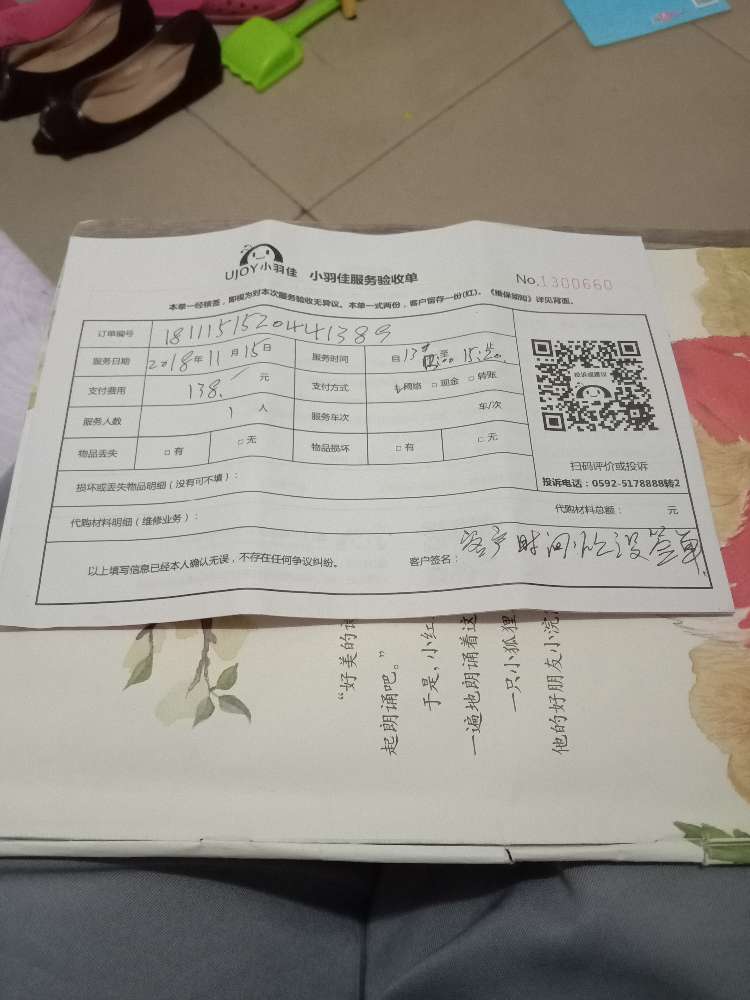 UJOY小羽佳 小羽佳服务验收单 No.1300660
本单一经核签，即视为对本次服务验收无异议。本单一式两份，客户留存一份(红)。《维保须知》详见背面。
订单编号 18111515204441389
服务日期 2018年11月15日 服务时间 自 至
支付费用 138. 元 支付方式 网络 □ 现金 □ 转账
服务人数 1 人 服务车次 车/次
物品丢失 □ 有 □ 无 物品损坏 □ 有 □ 无
投诉或建议
扫码评价或投诉
投诉电话：0592-5178888转2
损坏或丢失物品明细（没有可不填）：
代购材料明细（维修业务）： 代购材料总额： 元
以上填写信息已经本人确认无误，不存在任何争议纠纷。 客户签名：客户时间 没签单
“好美的
起朗诵吧。”
于是，小红
一遍地朗诵着这
一只小狐狸
他的好朋友小浣